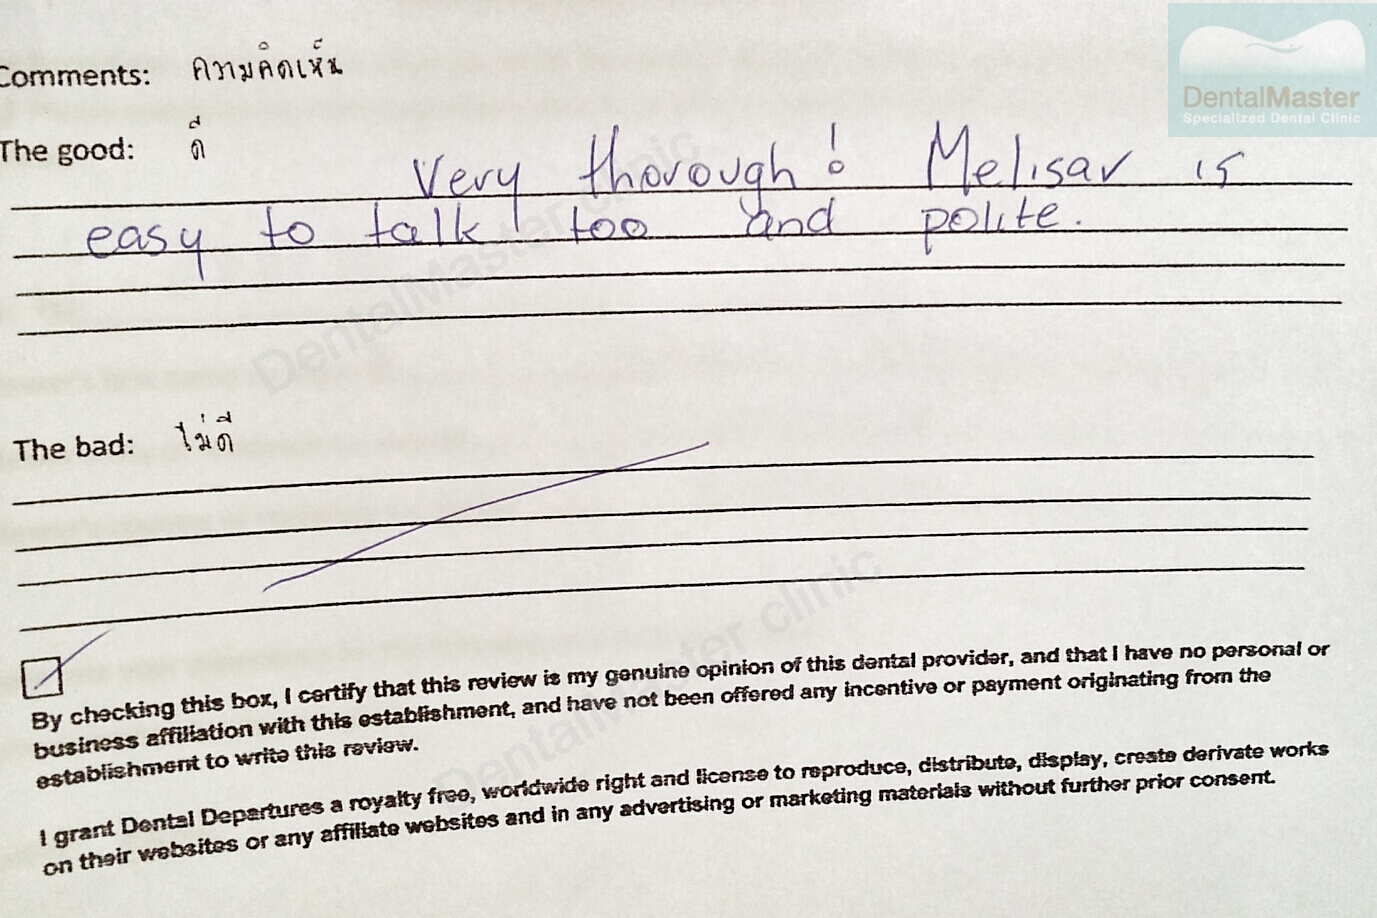 DentalMaster
Specialized Dental Clinic
Comments: ความคิดเห็น
The good: ดี
Very thorough! Melisar is
easy to talk too and polite.
DentalMaster clinic
The bad: ไม่ดี
DentalMaster clinic
By checking this box, I certify that this review is my genuine opinion of this dental provider, and that I have no personal or
business affiliation with this establishment, and have not been offered any incentive or payment originating from the
establishment to write this review.
I grant Dental Departures a royalty free, worldwide right and license to reproduce, distribute, display, create derivate works
on their websites or any affiliate websites and in any advertising or marketing materials without further prior consent.